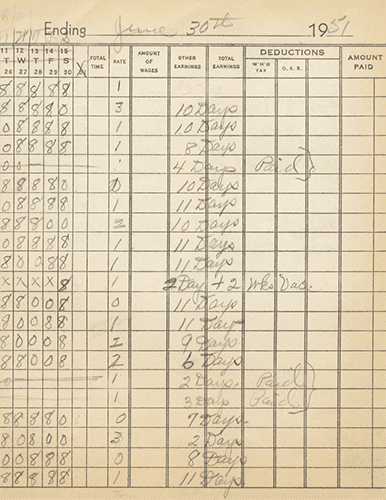 Ending June 30th 1951
11 12 13 14 15 TOTAL TIME RATE AMOUNT OF WAGES OTHER EARNINGS TOTAL EARNINGS DEDUCTIONS AMOUNT PAID
T W T F S W'H'G TAX O.A.B.
26 27 28 29 30 X
8 8 8 8 8 1
8 8 8 8 0 3 10 Days
0 8 8 8 8 1 10 Days
0 8 8 8 8 1 8 Days
0 0 4 Days Paid
8 8 8 8 0 0 10 Days
0 8 8 8 8 1 11 Days
8 8 8 0 0 2 10 Days
0 8 8 8 8 1 11 Days
8 X 0 8 8 1 11 Days
X X X X 8 1 2 Day + 2 Wks Vac.
8 8 0 0 8 0 11 Days
8 0 0 8 8 1 11 Days
8 0 0 0 8 2 9 Days
8 8 0 0 8 2 6 Days
0 1 2 Days. Paid
1 3 Days Paid
8 8 8 8 0 0 7 Days
8 0 8 0 0 3 2 Days
0 0 8 8 8 0 8 Days
8 8 8 8 8 1 11 Days